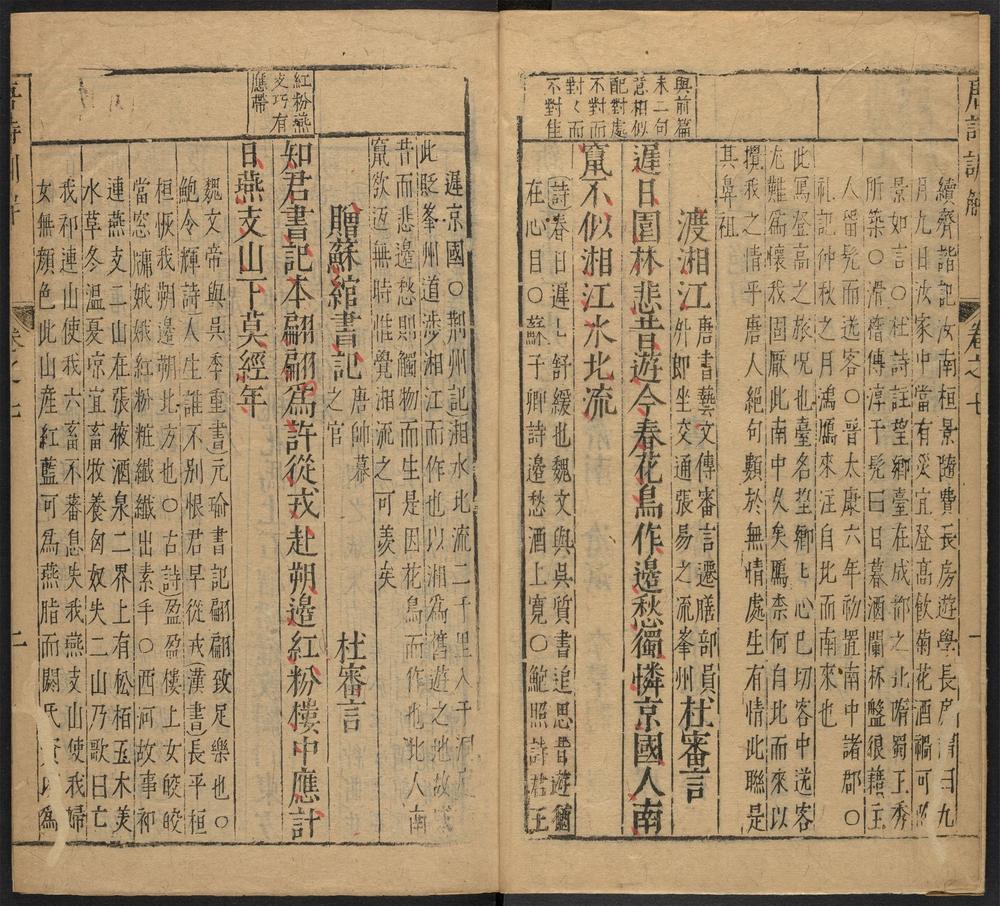 唐詩訓解
卷之七
一
續齊諧記汝南桓景隨費長房遊學長房謂曰九
月九日汝家中當有災宜登高飲菊花酒禍可
景如言○杜詩註望鄉臺在成都之北隋蜀王秀
所築○滑稽傳淳于髡曰日暮酒闌杯盤狼藉主
人留髡而送客○晉太康六年初置南中諸郡○
礼記仲秋之月鴻鴈來注自北而南來也
此寫登高之旅況也臺名望鄉〻心已切客中送客
尤難爲懷我固厭此南中久矣鴈柰何自北而來以
攪我之情乎唐人絕句類於無情處生有情此聯是
其鼻祖
渡湘江 唐書藝文傳審言遷膳部員
外郎坐交通張易之流峯州 杜審言
與前篇
末二句
意相似
配對處
不對而
對〻而
不對佳
遲日園林悲昔遊今春花鳥作邊愁獨憐京國人南
竄不似湘江水北流
詩春日遲〻舒緩也魏文與吳質書追思昔遊猶
在心目○蘇子卿詩邊愁酒上寬○鮑照詩君王
遲京國○荆州記湘水北流二千里入于洞庭
此貶峯州道涉湘江而作也以湘爲舊遊之地故
昔而悲邊愁則觸物而生是因花鳥而作也北人南
竄欲返無時惟覺湘流之可羡矣
贈蘇綰書記 唐帥幕
之官 杜審言
紅粉燕
支巧有
應帶
知君書記本翩翩爲許從戎赴朔邊紅粉樓中應計
日燕支山下莫經年
魏文帝與吳季重書元瑜書記翩翩致足樂也○
鮑令輝詩人生誰不別恨君早從戎漢書長平桓
桓恢我朔邊朔北方也○古詩盈盈樓上女皎皎
當窓牖娥娥紅粉粧纖纖出素手○西河故事祁
連燕支二山在張掖酒泉二界上有松栢五木美
水草冬溫夏凉宜畜牧養匈奴失二山乃歌曰亡
我祁連山使我六畜不蕃息失我燕支山使我婦
女無顏色此山産紅藍可爲燕脂而閼氏資以爲
唐詩訓解
卷之七
二